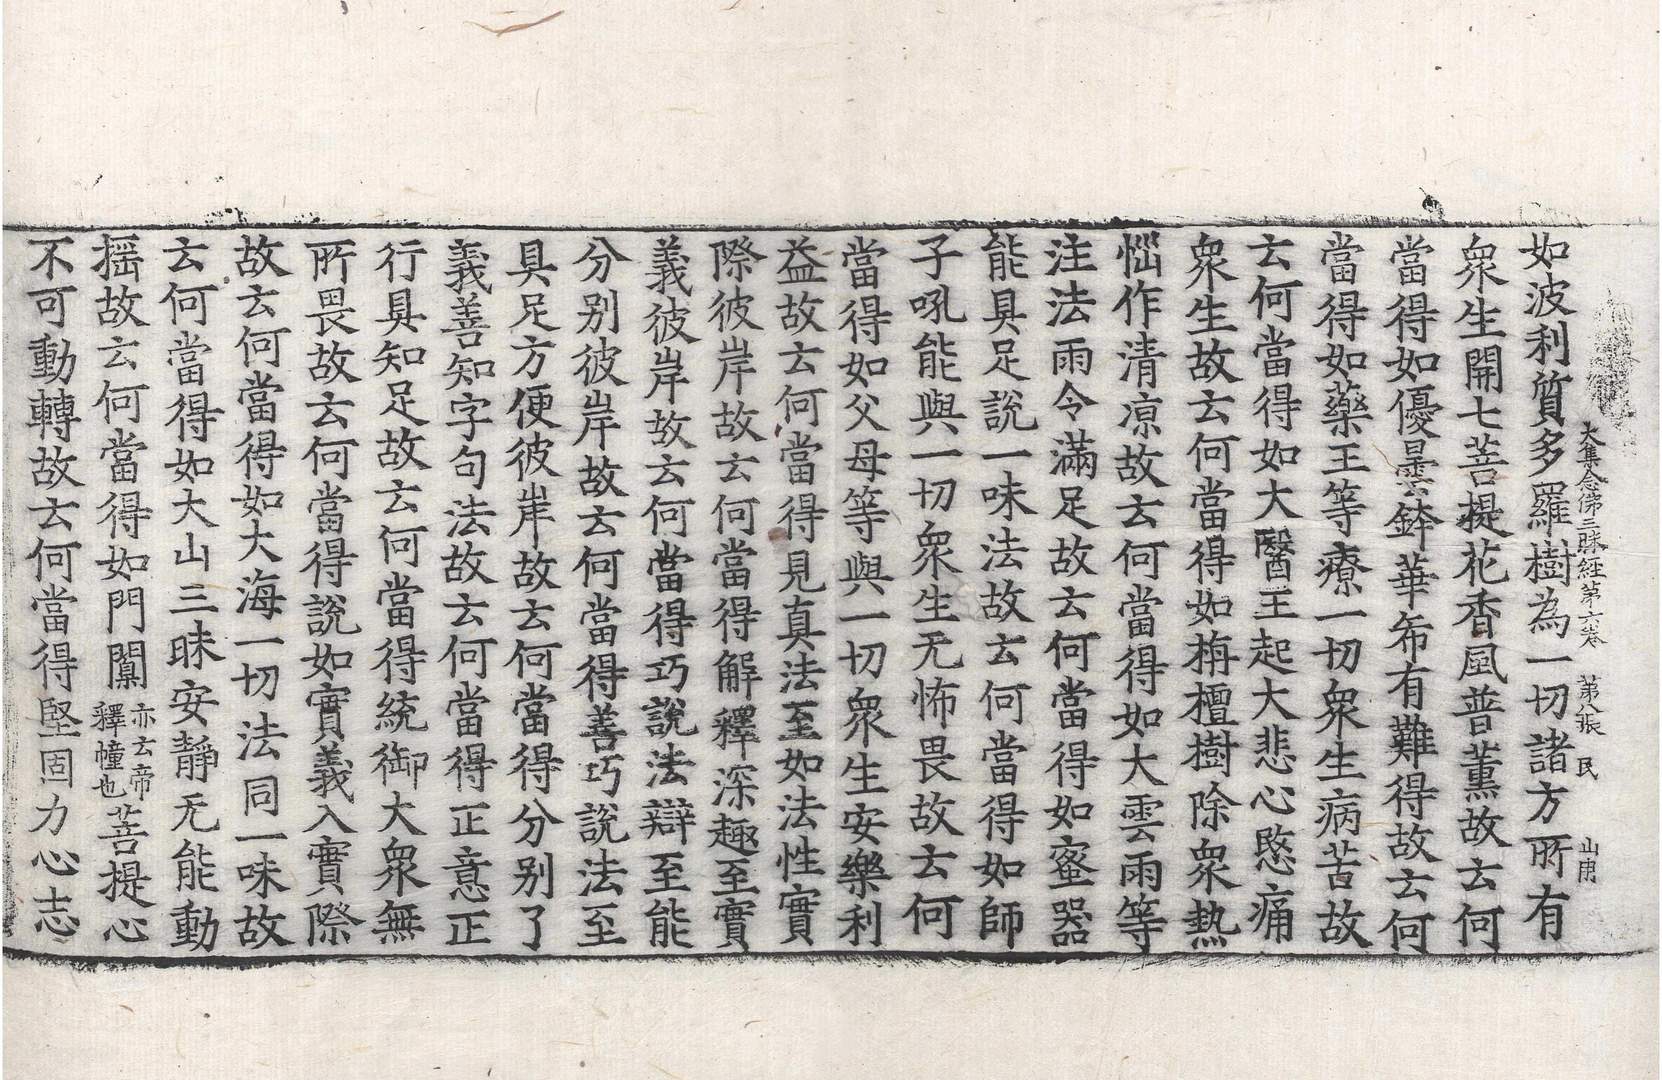 大集念佛三昧經第六卷　第八張　民　山甫
如波利質多羅樹為一切諸方所有
衆生開七菩提花香風普薫故云何
當得如優曇鉢華希有難得故云何
當得如藥王等療一切衆生病苦故
云何當得如大醫王起大悲心愍痛
衆生故云何當得如栴檀樹除衆熱
惱作清凉故云何當得如大雲雨等
注法雨令滿足故云何當得如蜜器
能具足說一味法故云何當得如師
子吼能與一切衆生无怖畏故云何
當得如父母等與一切衆生安樂利
益故云何當得見真法至如法性實
際彼岸故云何當得解釋深趣至實
義彼岸故云何當得巧說法辯至能
分别彼岸故云何當得善巧說法至
具足方便彼岸故云何當得分别了
義善知字句法故云何當得正意正
行具知足故云何當得統御大衆無
所畏故云何當得說如實義入實際
故云何當得如大海一切法同一味故
云何當得如大山三昧安靜无能動
揺故云何當得如門闑亦云帝釋幢也菩提心
不可動轉故云何當得堅固力心志